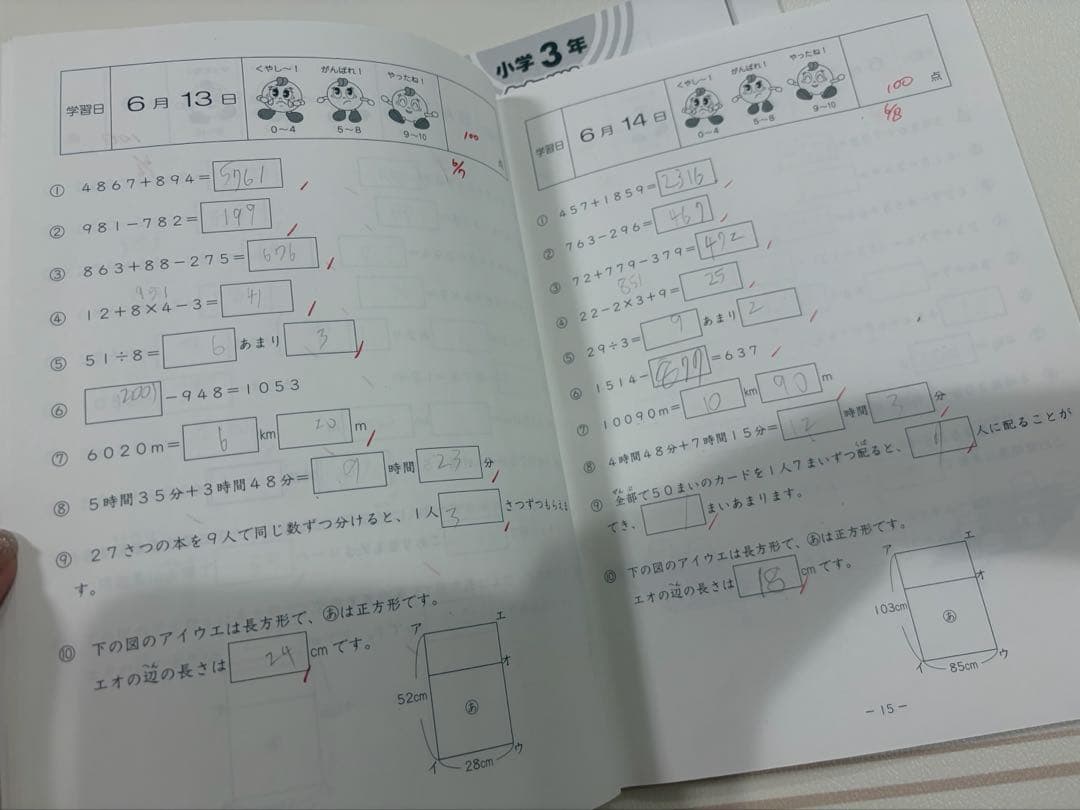 小学3年
学習日
6月13日
くやし〜！
がんばれ！
やったね！
0〜4
5〜8
9〜10
100
① 4867+894=5761
② 981−782=199
③ 863+88−275=676
951
④ 12+8×4−3=41
⑤ 51÷8=6あまり3
⑥ 2001−948=1053
⑦ 6020m=6km20m
⑧ 5時間35分+3時間48分=9時間23分
⑨ 27さつの本を9人で同じ数ずつ分けると、1人3さつずつもらえま
す。
⑩ 下の図のアイウエは長方形で、あは正方形です。
エオの辺の長さは24cmです。
へん
ア
エ
オ
52cm
あ
イ
28cm
ウ
学習日
6月14日
くやし〜！
がんばれ！
やったね！
0〜4
5〜8
9〜10
100点
6/8
① 457+1859=2316
② 763−296=467
③ 72+779−379=472
851
④ 22−2×3+9=25
⑤ 29÷3=9あまり2
⑥ 1514−877=637
⑦ 10090m=10km90m
⑧ 4時間48分+7時間15分=12時間3分
⑨ 全部で50まいのカードを1人7まいずつ配ると、7人に配ることが
ぜんぶ
くば
でき、1まいあまります。
⑩ 下の図のアイウエは長方形で、あは正方形です。
エオの辺の長さは18cmです。
へん
ア
エ
オ
103cm
あ
イ
85cm
ウ
−15−